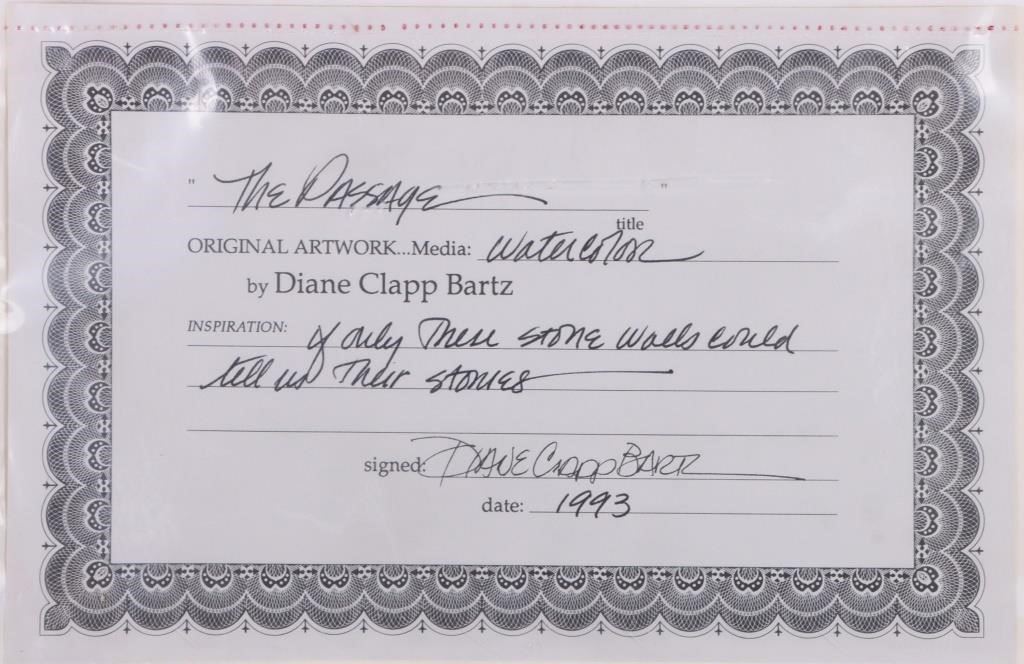 " The Passage "
title
ORIGINAL ARTWORK...Media: Watercolor
by Diane Clapp Bartz
INSPIRATION: If only These stone walls could
tell us Their stories
signed: Diane Clapp Bartz
date: 1993